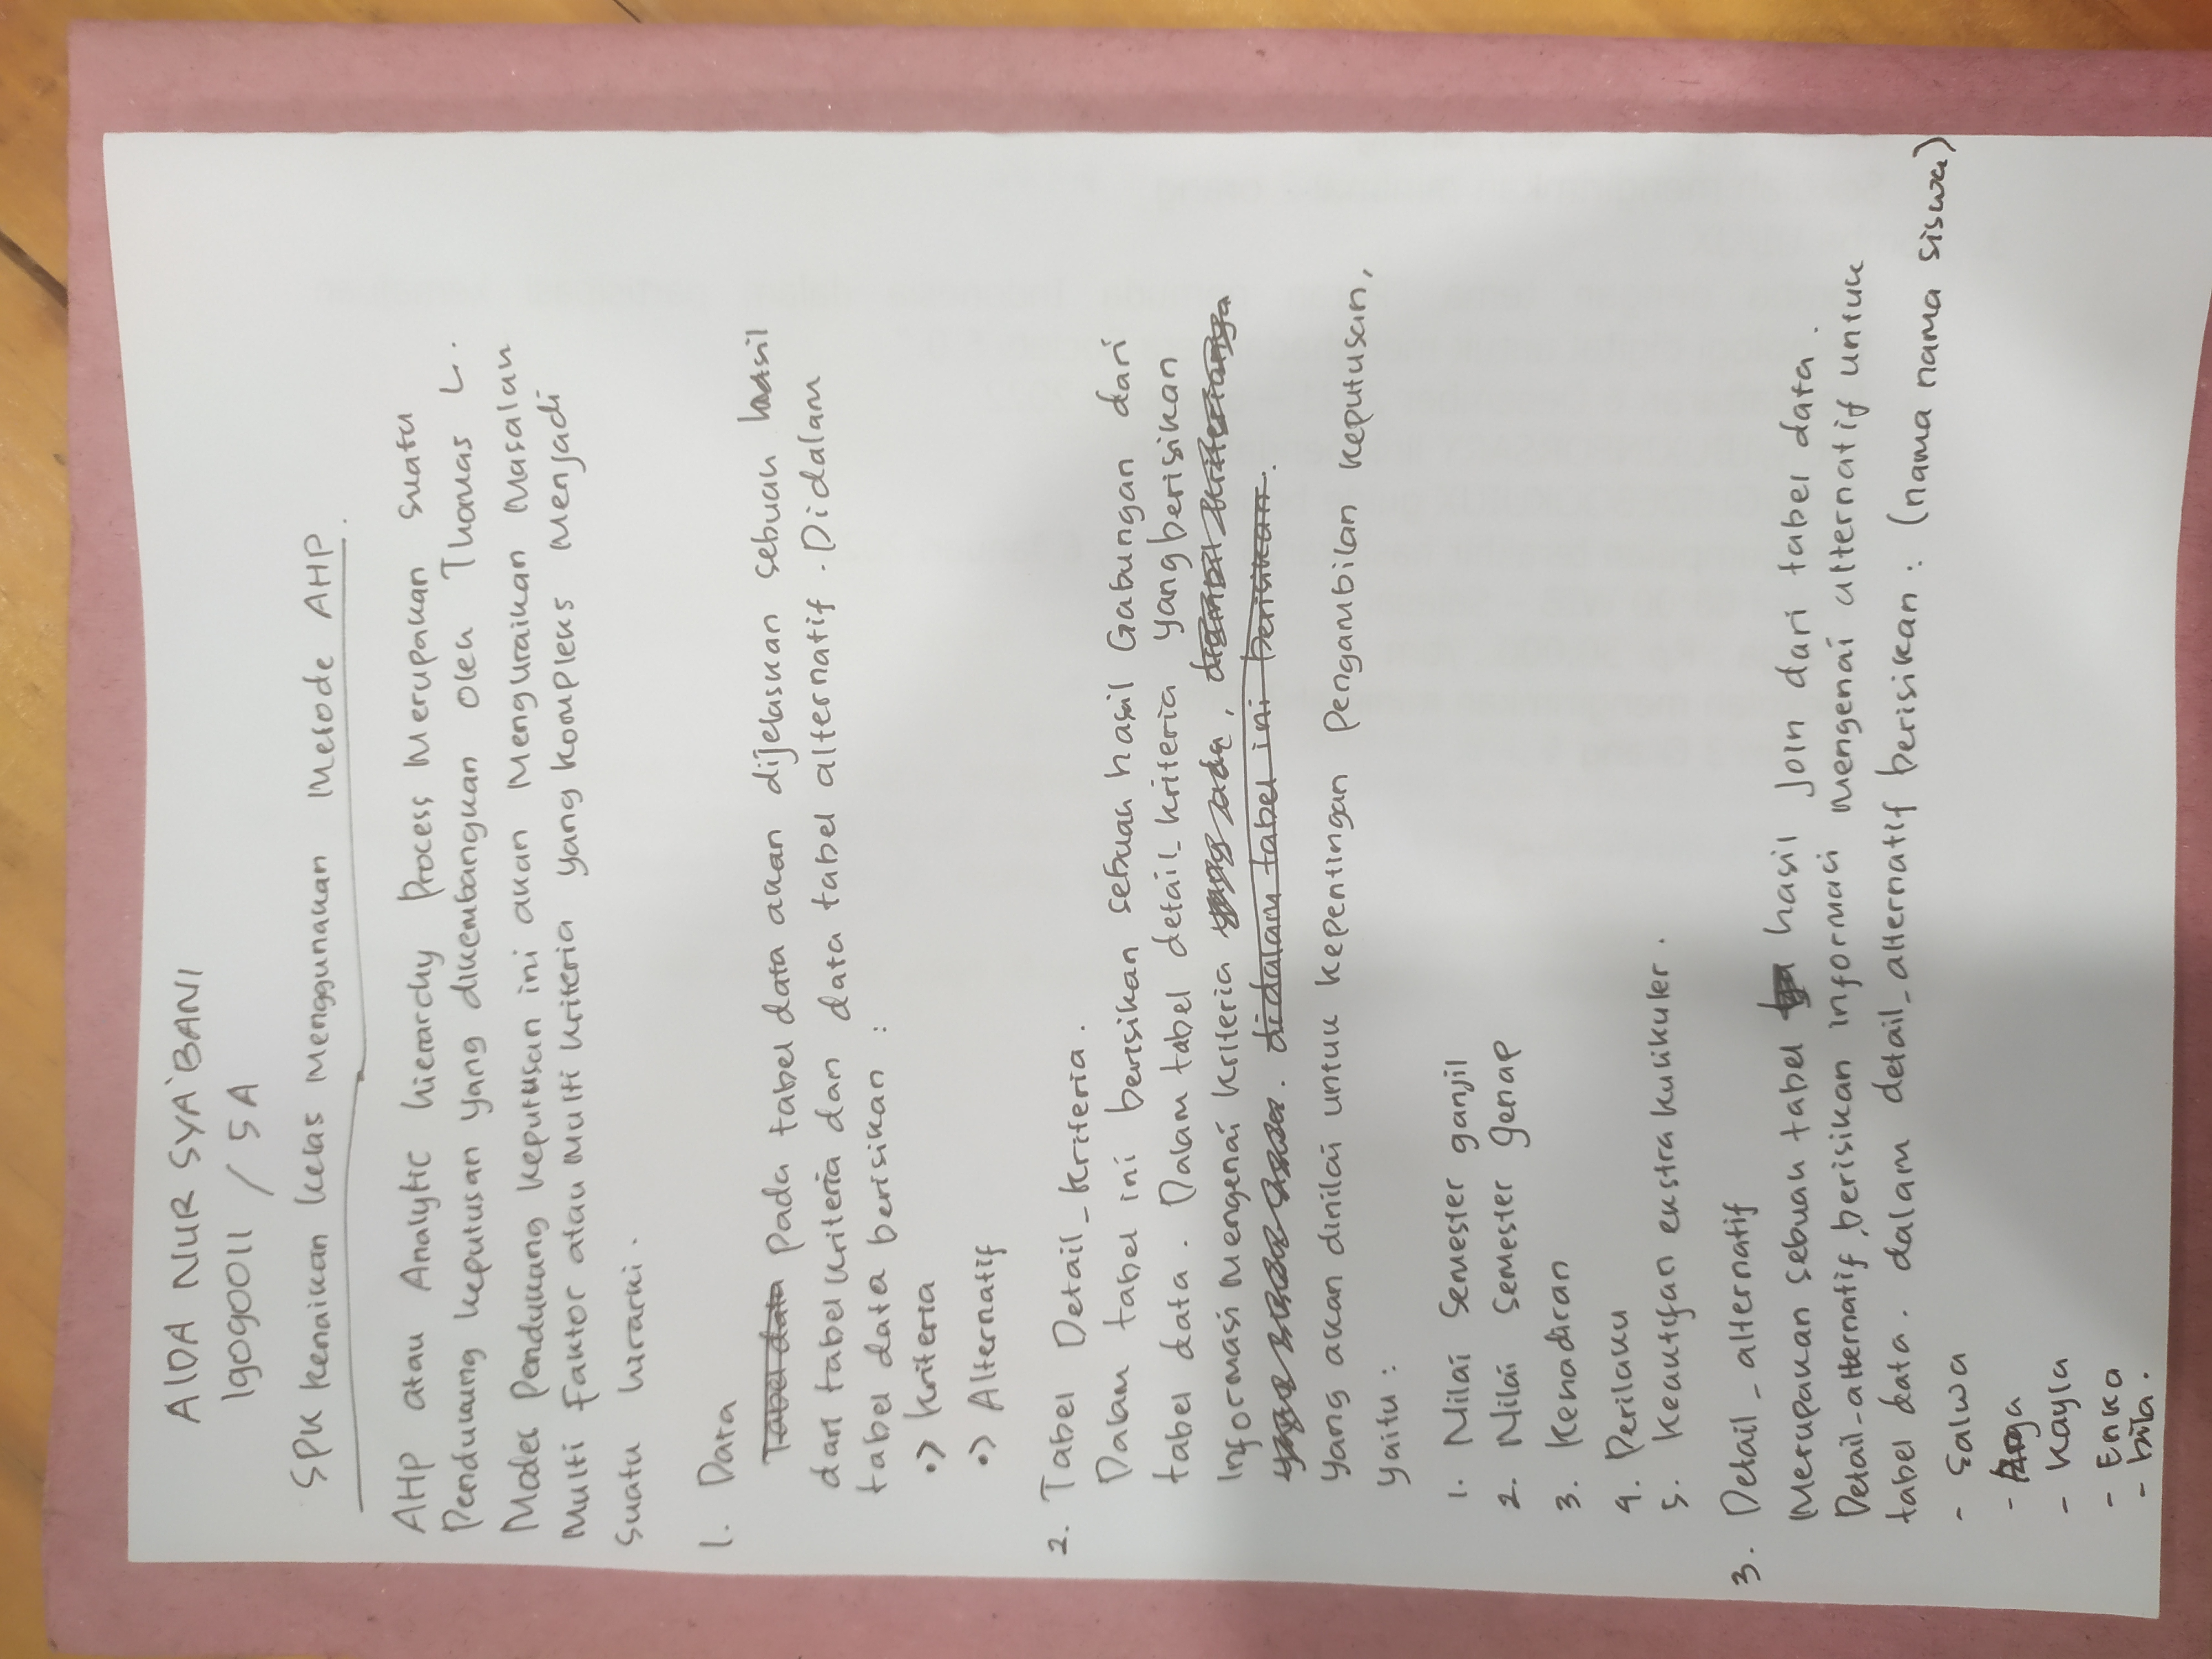 AIDA NUR SYA'BANI
19090011 / 5A
SPK Kenaikan Kelas Menggunakan Metode AHP.
AHP atau Analytic hierarchy Process Merupakan suatu
Pendukung keputusan yang dikembangkan oleh Thomas L.
Model Pendukung keputusan ini akan Menguraikan Masalah
Multi Faktor atau Multi kriteria yang kompleks Menjadi
Suatu hirarki.
1. Data
Tabel data Pada tabel data akan dijelaskan sebuah hasil
dari tabel kriteria dan data tabel alternatif. Didalam
tabel data berisikan :
•> Kriteria
•> Alternatif
2. Tabel Detail_kriteria.
Dalam tabel ini berisikan sebuah hasil Gabungan dari
tabel data. Dalam tabel detail_kriteria yang berisikan
Informasi Mengenai kriteria yang ada,
didalam tabel ini berisikan.
yang akan dinilai untuk kepentingan Pengambilan keputusan,
yaitu :
1. Nilai Semester ganjil
2. Nilai Semester genap
3. Kehadiran
4. Perilaku
5. Keaktifan ekstra kulikuler.
3. Detail_alternatif
Merupakan sebuah tabel hasil Join dari tabel data.
Detail_alternatif berisikan informasi mengenai alternatif untuk
tabel data. dalam detail_alternatif berisikan : (nama nama siswa)
- Salwa
- Kayla
- Enka
- bila.